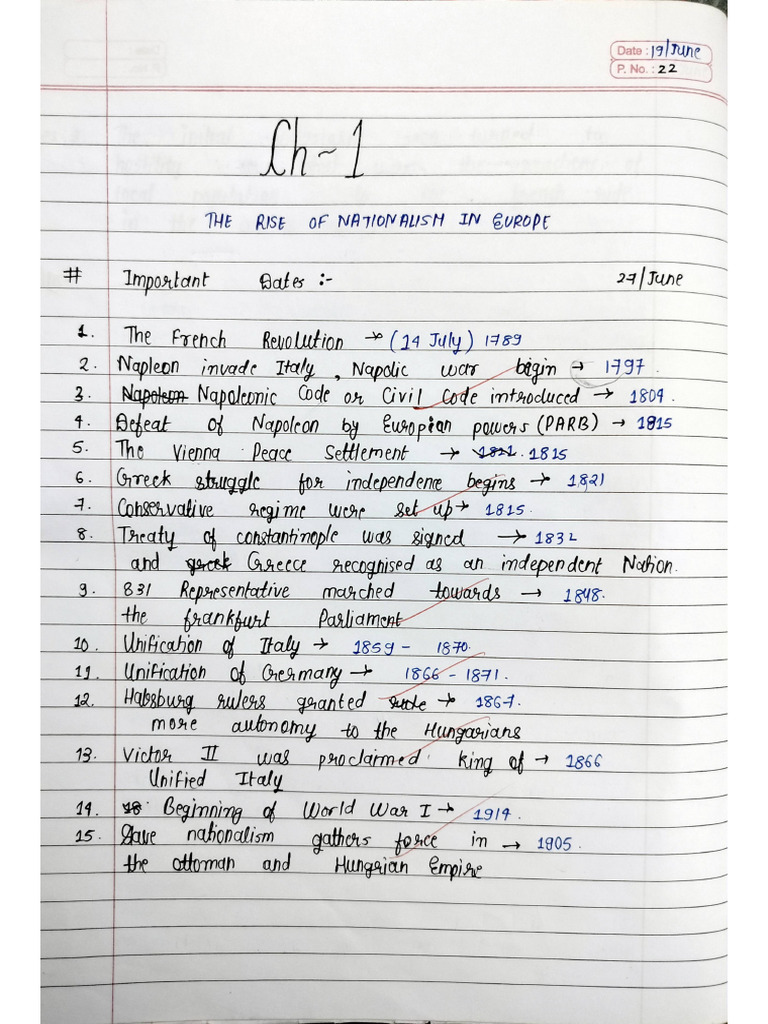 Date : 19/June
P. No. : 22
Ch-1
THE RISE OF NATIONALISM IN EUROPE
# Important Dates :- 27/June
1. The French Revolution → (14 July) 1789
2. Napleon invade Italy, Napolic war begin → 1797.
3. Napoleon Napoleonic Code or Civil Code introduced → 1804.
4. Defeat of Napoleon by Europian powers (PARB) → 1815
5. The Vienna Peace Settlement → 1821. 1815
6. Greek struggle for independene begins → 1821
7. Conservative regime were set up → 1815.
8. Treaty of constantinople was signed → 1832
and greek Greece recognised as an independent Nation.
9. 831 Representative marched towards → 1848.
the frankfurt Parliament
10. Unification of Italy → 1859 - 1870.
11. Unification of Germany → 1866 - 1871.
12. Habsburg rulers granted → 1867.
more autonomy to the Hungarians
13. Victor II was proclaimed king of → 1866
Unified Italy
14. 18. Beginning of World War I → 1914.
15. Slave nationalism gathers force in → 1905.
the ottoman and Hungrian Empire